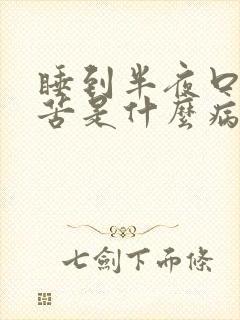 睡到半夜口
苦是什麼病
七劍下而條